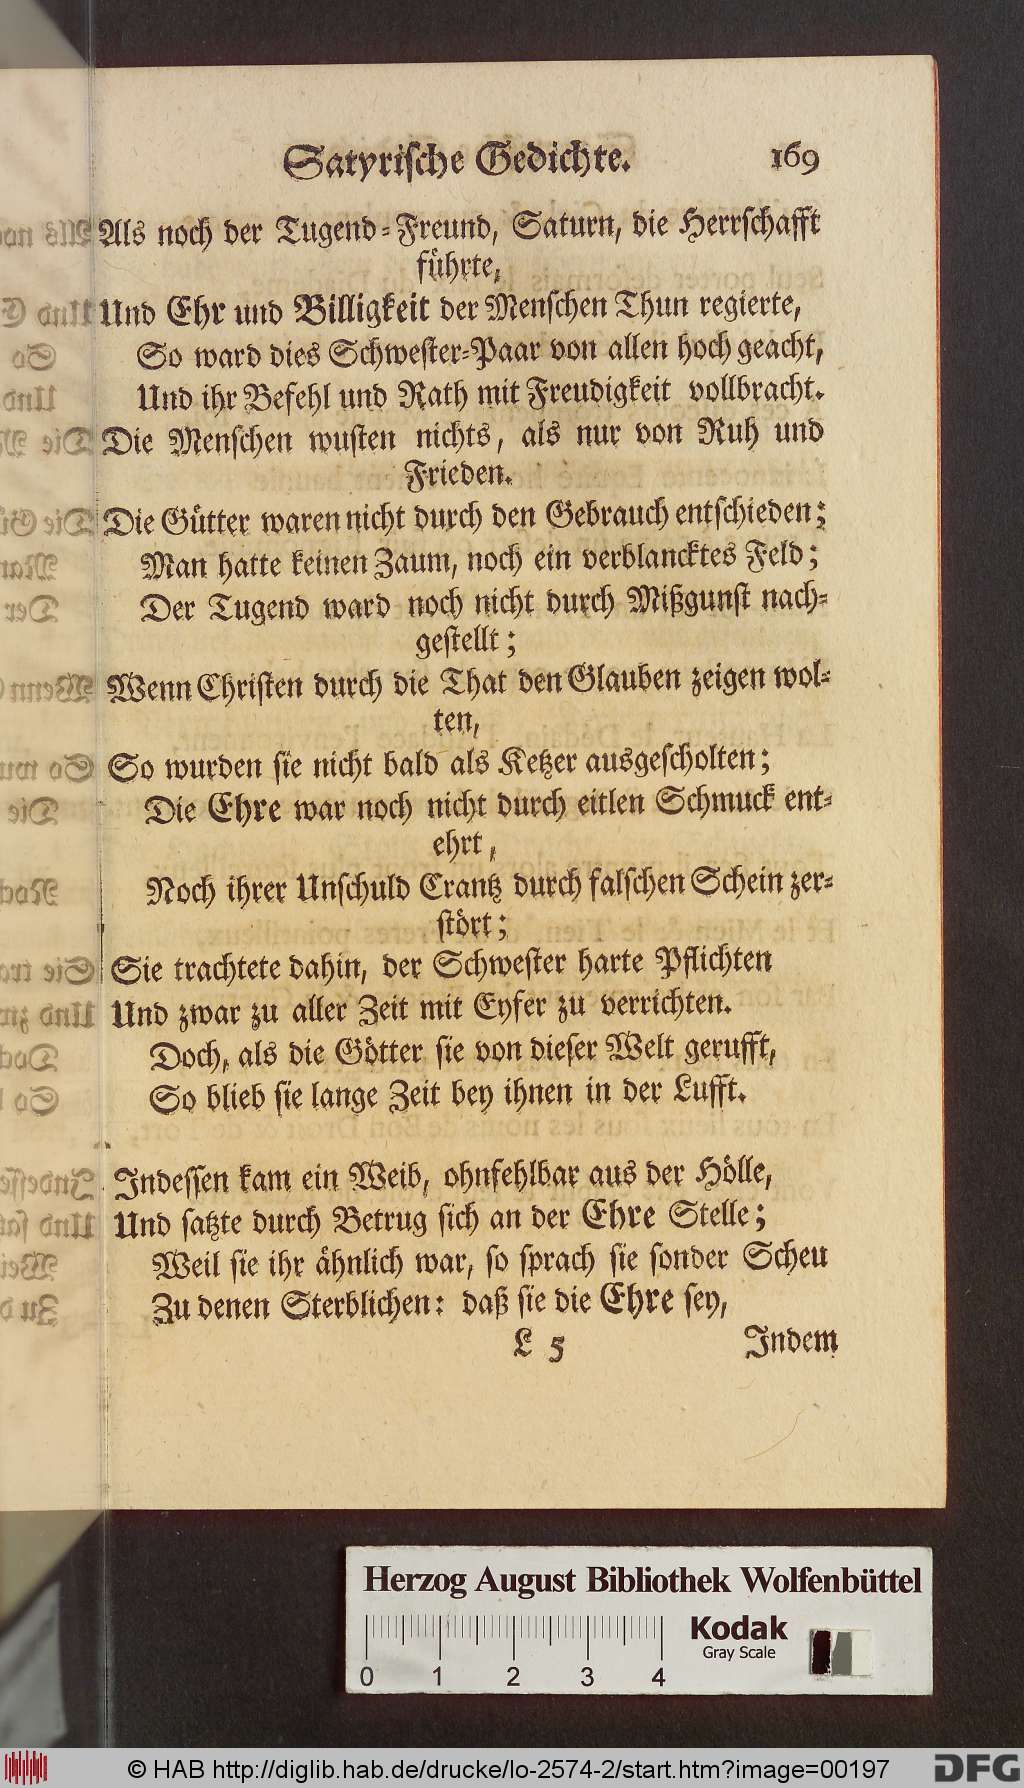 Satyrische Gedichte. 169
Als noch der Tugend-Freund, Saturn, die Herrschafft
führte,
Und Ehr und Billigkeit der Menschen Thun regierte,
So ward dies Schwester-Paar von allen hoch geacht,
Und ihr Befehl und Rath mit Freudigkeit vollbracht.
Die Menschen wusten nichts, als nur von Ruh und
Frieden.
Die Gütter waren nicht durch den Gebrauch entschieden;
Man hatte keinen Zaum, noch ein verblancktes Feld;
Der Tugend ward noch nicht durch Mißgunst nach-
gestellt;
Wenn Christen durch die That den Glauben zeigen wol-
ten,
So wurden sie nicht bald als Ketzer ausgescholten;
Die Ehre war noch nicht durch eitlen Schmuck ent-
ehrt,
Noch ihrer Unschuld Crantz durch falschen Schein zer-
stört;
Sie trachtete dahin, der Schwester harte Pflichten
Und zwar zu aller Zeit mit Eyfer zu verrichten.
Doch, als die Götter sie von dieser Welt gerufft,
So blieb sie lange Zeit bey ihnen in der Lufft.
Indessen kam ein Weib, ohnfehlbar aus der Hölle,
Und satzte durch Betrug sich an der Ehre Stelle;
Weil sie ihr ähnlich war, so sprach sie sonder Scheu
Zu denen Sterblichen: daß sie die Ehre sey,
L 5 Indem
Herzog August Bibliothek Wolfenbüttel
Kodak
Gray Scale
0 1 2 3 4
© HAB http://diglib.hab.de/drucke/lo-2574-2/start.htm?image=00197
DFG